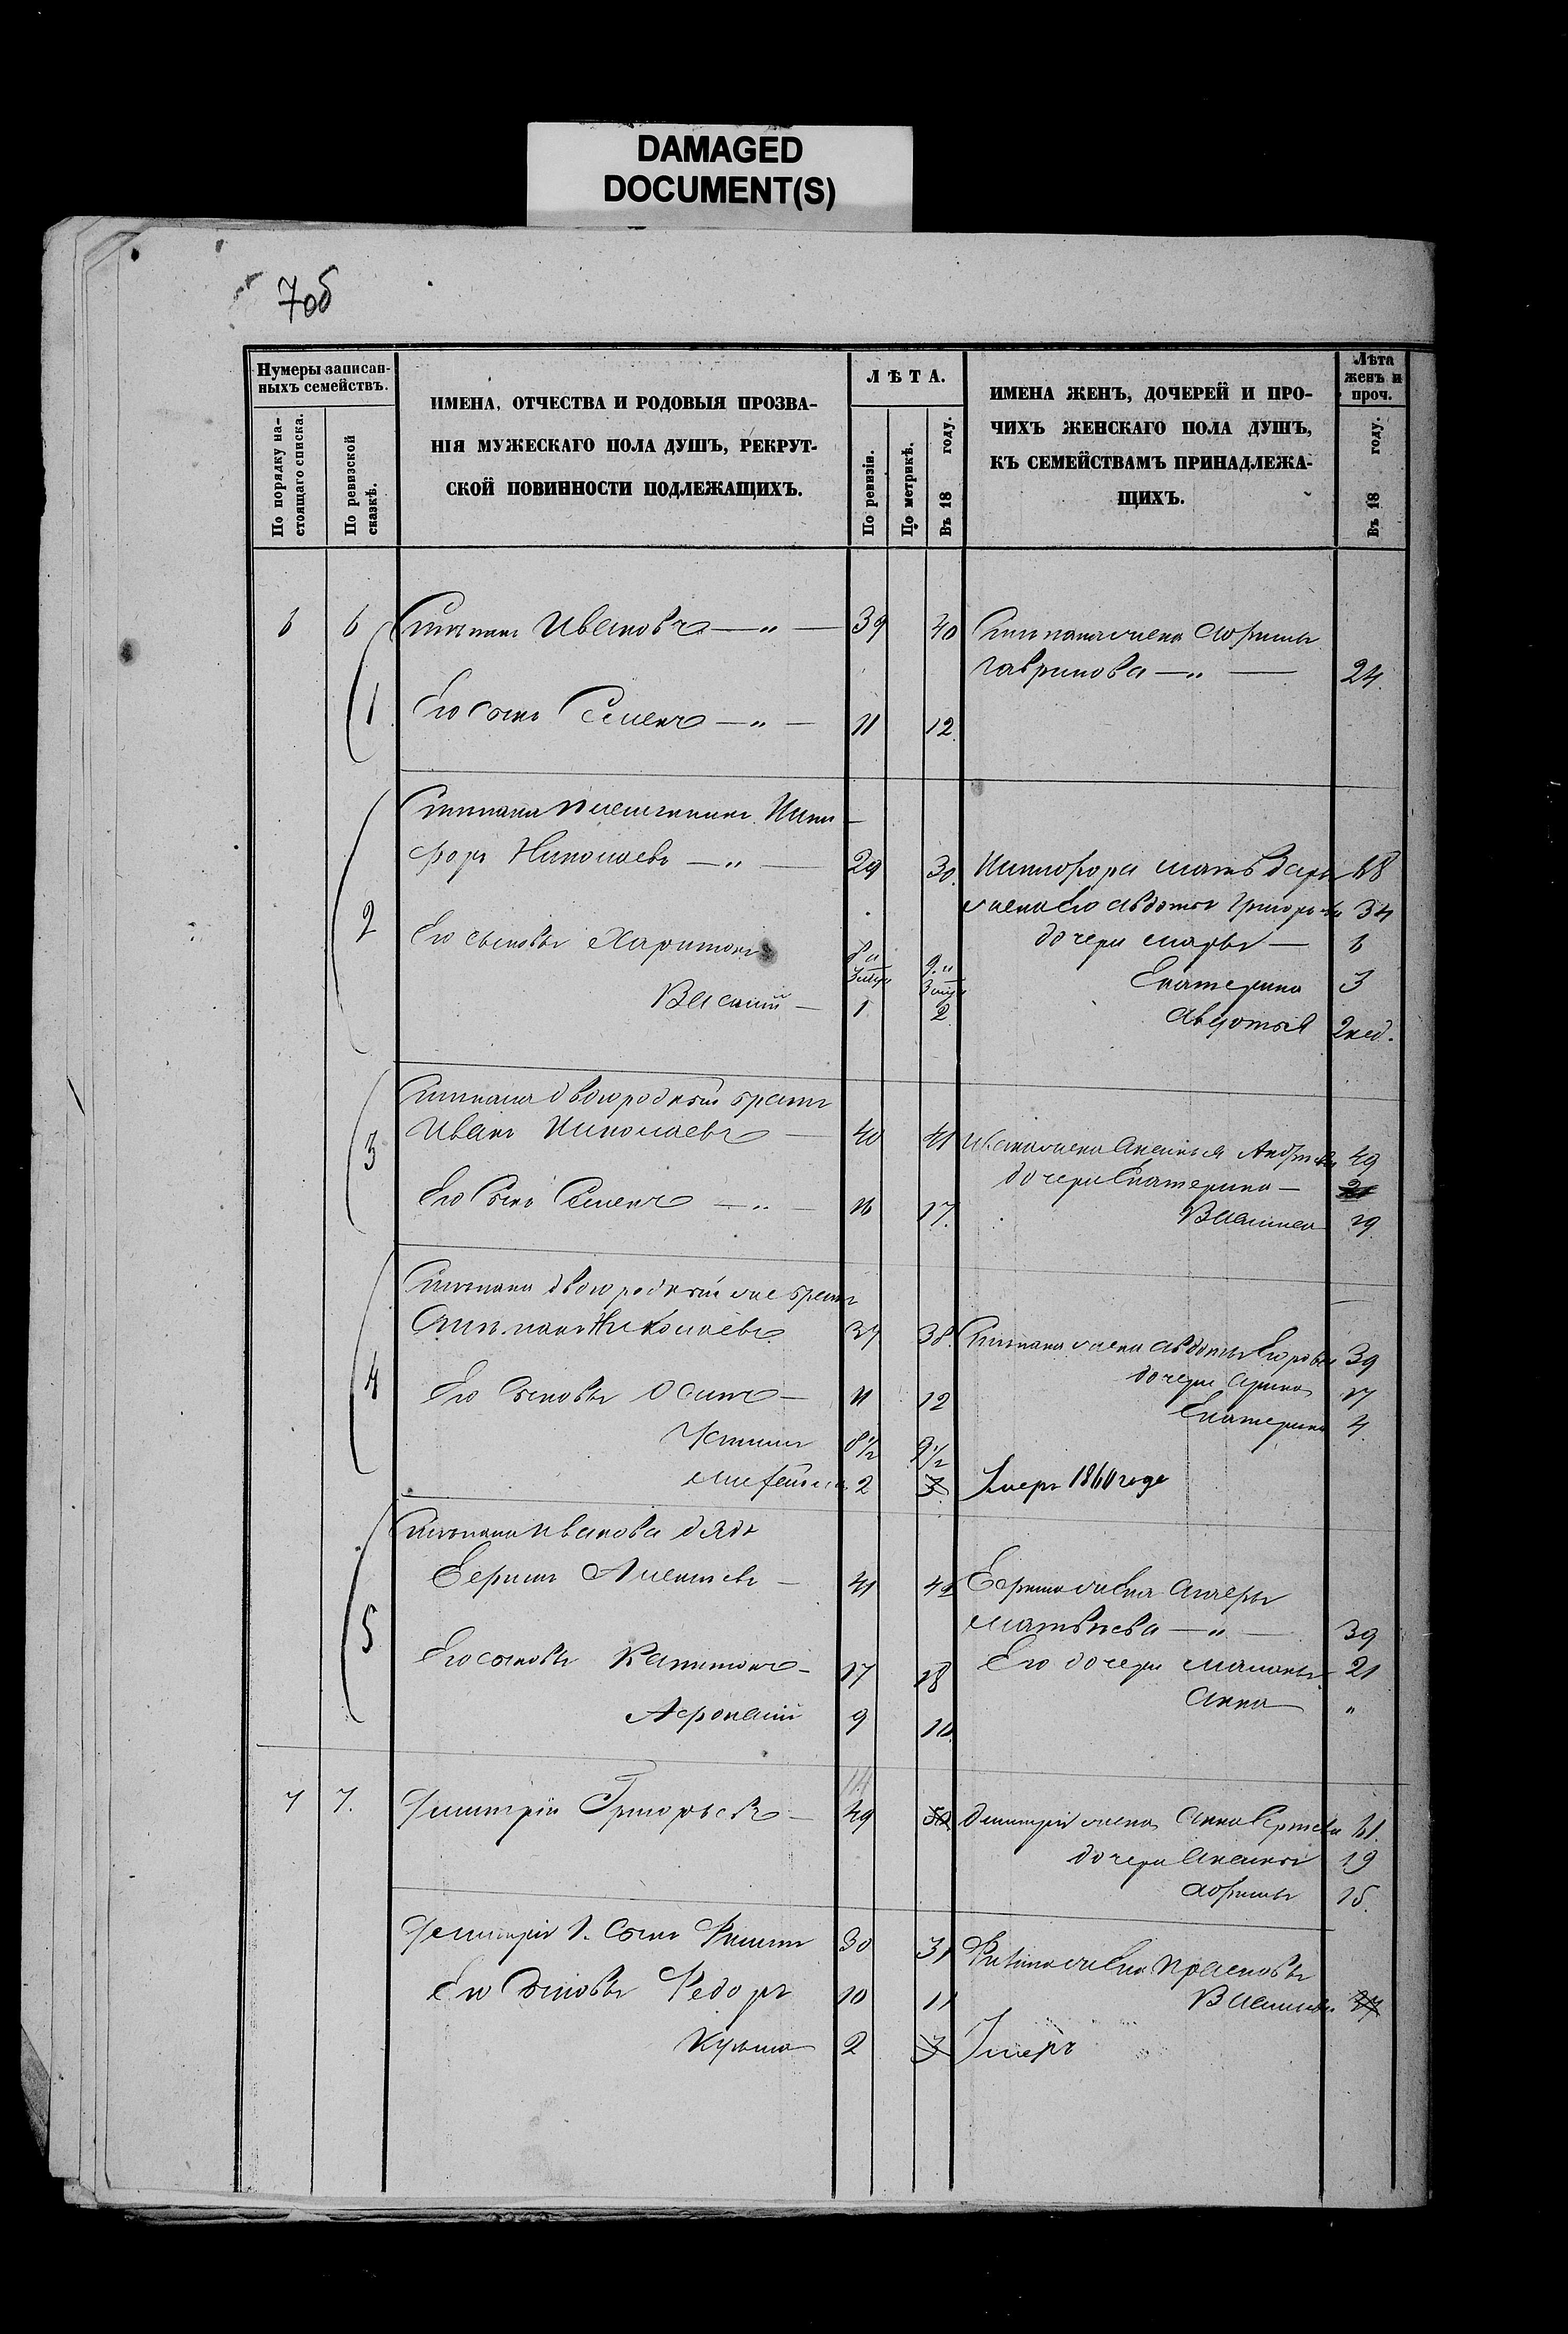 DAMAGED
DOCUMENT(S)
7об
Нумеры записан-
ныхъ семействъ.
По порядку на-
стоящаго списка.
По ревизской
сказкѣ.
ИМЕНА, ОТЧЕСТВА И РОДОВЫЯ ПРОЗВА-
НІЯ МУЖЕСКАГО ПОЛА ДУШЪ, РЕКРУТ-
СКОЙ ПОВИННОСТИ ПОДЛЕЖАЩИХЪ.
ЛѢТА.
По ревизіи.
По метрикѣ.
Въ 18 году.
ИМЕНА ЖЕНЪ, ДОЧЕРЕЙ И ПРО-
ЧИХЪ ЖЕНСКАГО ПОЛА ДУШЪ,
КЪ СЕМЕЙСТВАМЪ ПРИНАДЛЕЖА-
ЩИХЪ.
Лѣта
женъ и
проч.
Въ 18 году.
6 6 Степанъ Ивановъ — „ — 39 40 Степана жена Афимья
Гаврилова — „ — 24.
1 Его сынъ Семенъ — „ — 11 12.
Степана племянникъ Ники-
форъ Николаевъ — „ — 29 30. Никифора мать Дарья 68
2 жена его Авдотья Григорьева 34
Его сыновья Харитонъ 8 и 9. и дочери Марья — 6
Екатерина 3
Василій — 1 2 Авдотья 2 нед.
Степана двоюродный братъ
3 Иванъ Николаевъ — 40 41 Ивана жена Аксинья Андреева 49
дочери Екатерина — 21
Его сынъ Семенъ — „ — 16 17. Василиса 19
Степана двоюродный же братъ
Степанъ Николаевъ 37 38. Степана жена Авдотья Егорова 39
4 дочери Арина 17
Его сыновья Осипъ — 11 12 Екатерина 4
Устинъ 8½ 9½
2 3 Умеръ 1860 года
Степана Иванова дядя
Ефимъ Алексѣевъ — 41 42 Ефима жена
5 Матвѣева — „ — 39
Его сыновья Капитонъ — 17 18 Его дочери Маланья 21
Анна „
Афонасій 9 10.
7 7. Дмитрій Григорьевъ — 49 50 Дмитрія жена Анна Сергѣева 61.
дочери Аксинья 19
Афимья 15.
Дмитрія 1. сынъ Филипъ 30 31 Филипа жена Прасковья
Его сыновья Федоръ 10 11
Кузьма 2 3 Умеръ